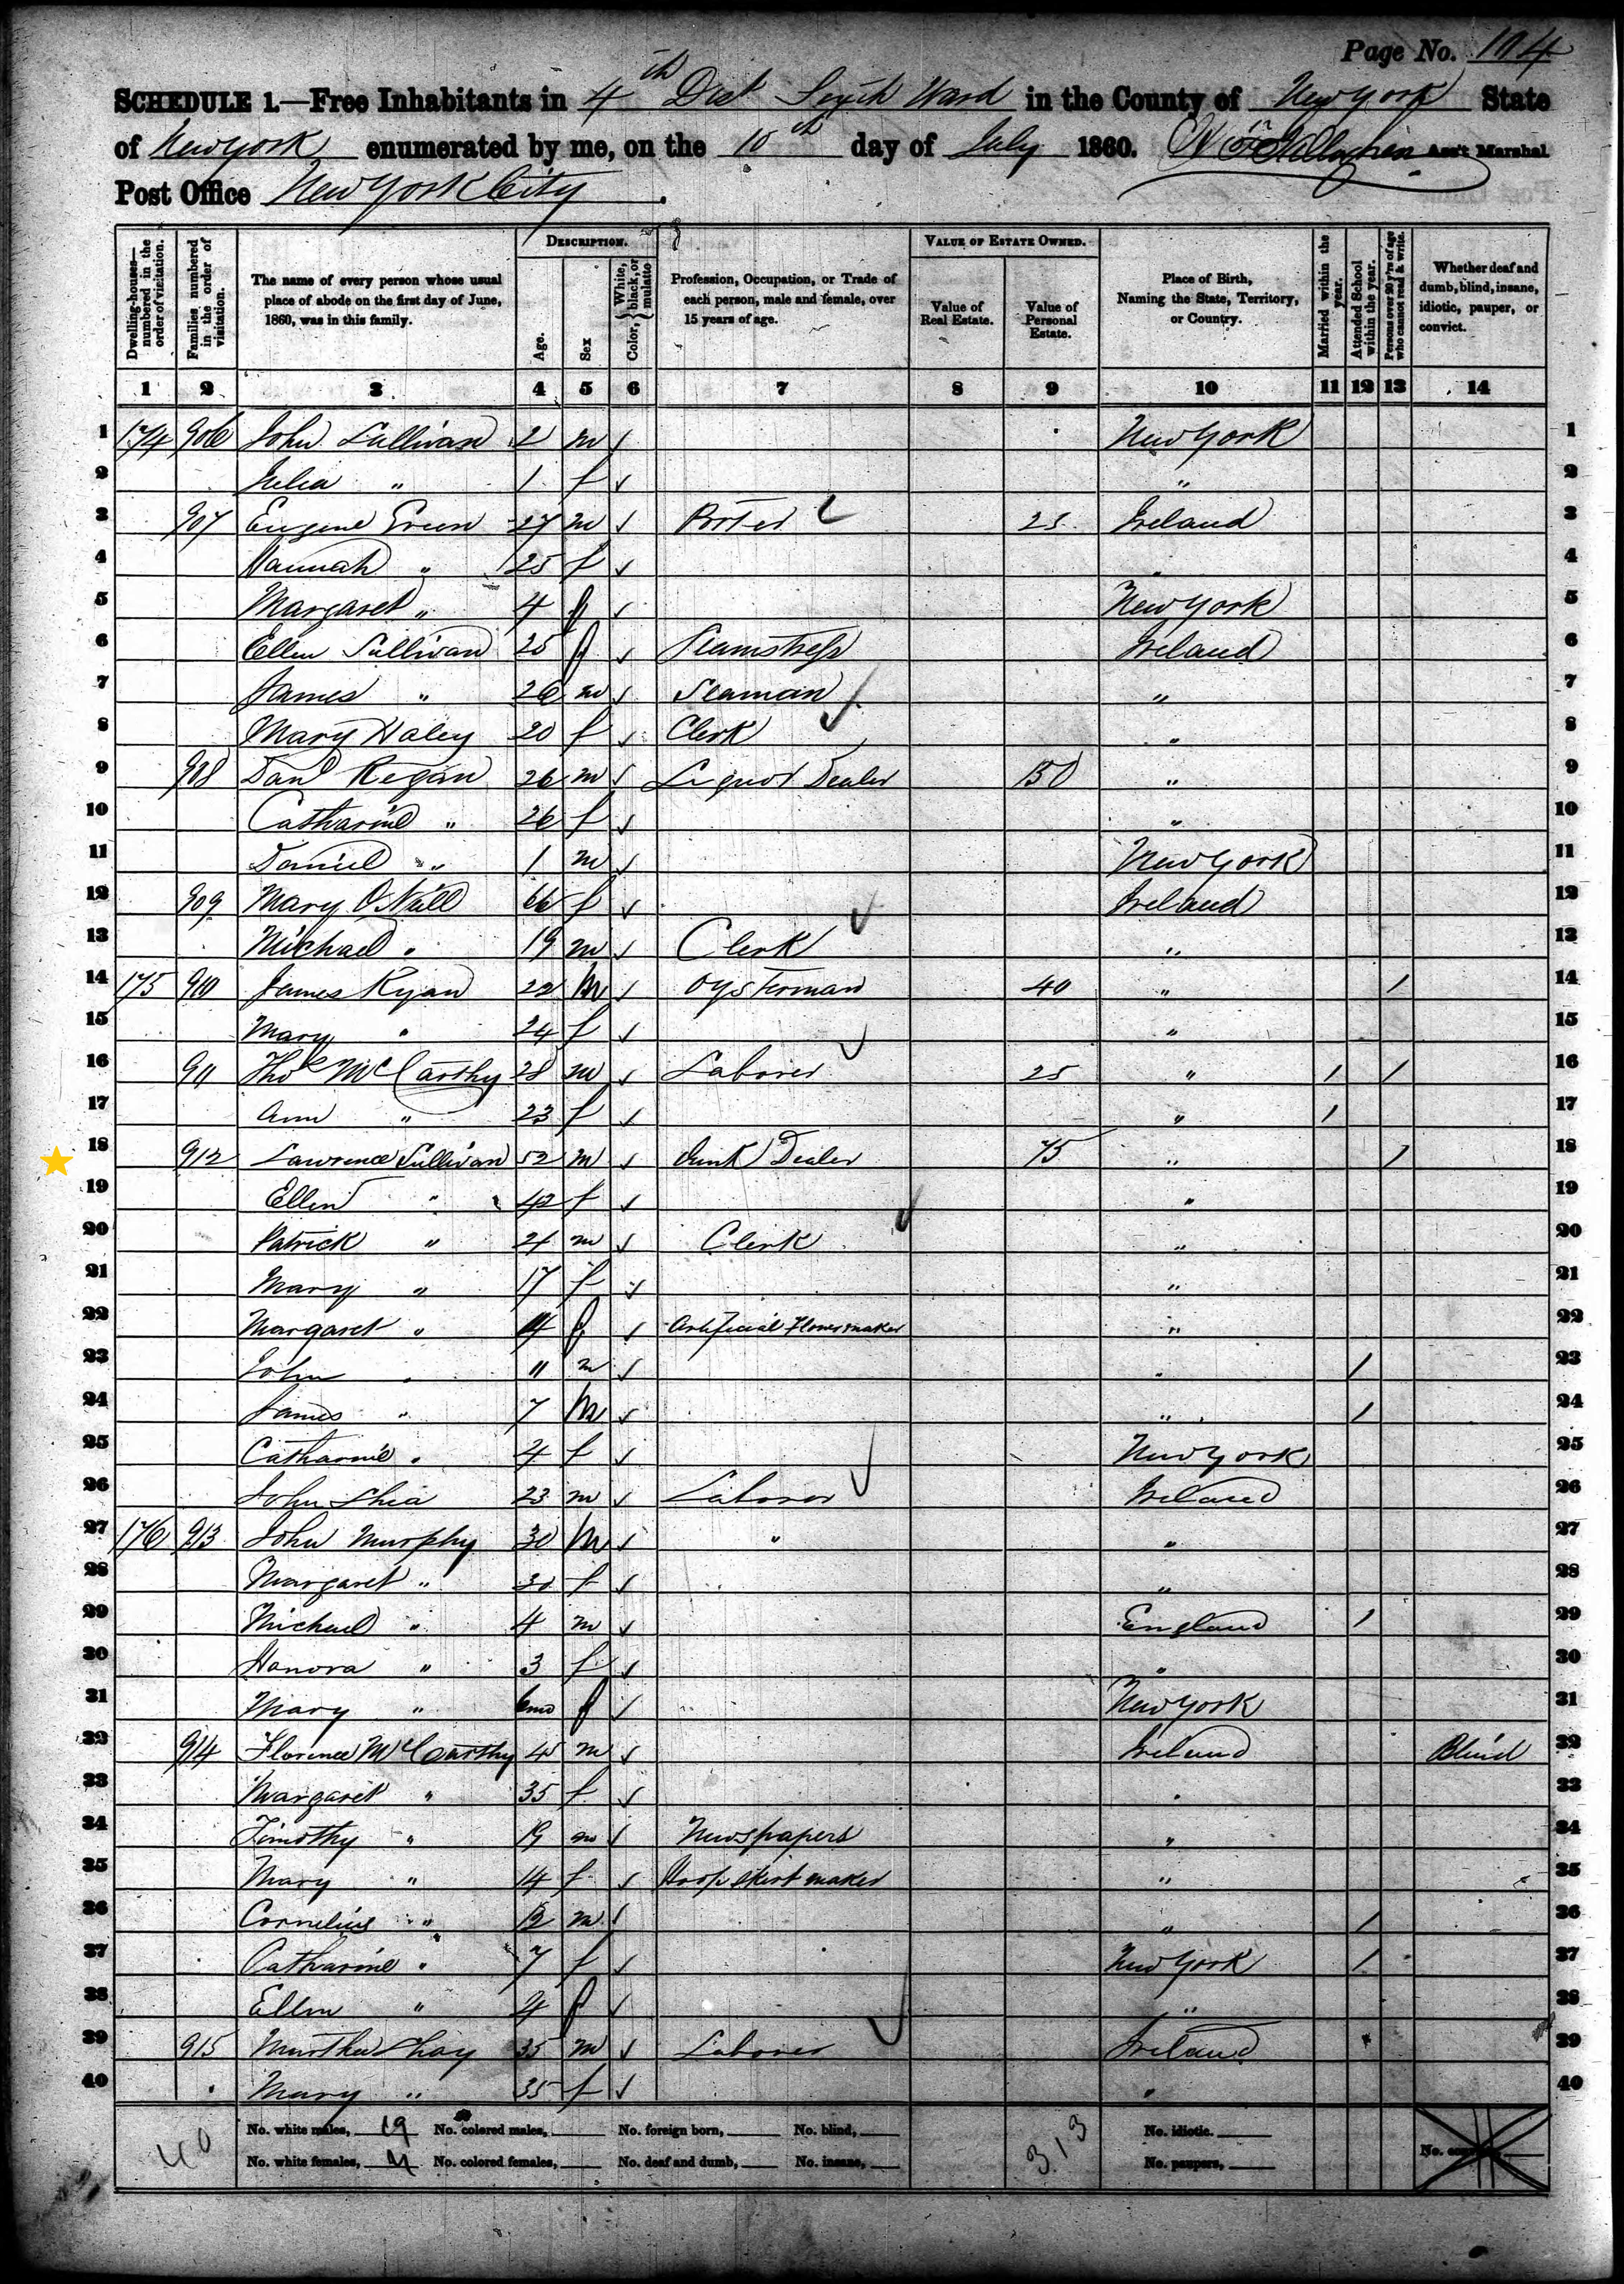 Page No. 104
SCHEDULE 1.—Free Inhabitants in 4th Dist Sixth Ward in the County of New York State
of New York enumerated by me, on the 10th day of July 1860. Ass't Marshal
Post Office New York City.
DESCRIPTION. VALUE OF ESTATE OWNED.
Dwelling-houses—numbered in the order of visitation. Families numbered in the order of visitation. The name of every person whose usual place of abode on the first day of June, 1860, was in this family. Age. Sex Color, White, black, or mulatto Profession, Occupation, or Trade of each person, male and female, over 15 years of age. Value of Real Estate. Value of Personal Estate. Place of Birth, Naming the State, Territory, or Country. Married within the year. Attended School within the year. Persons over 20 y'rs of age who cannot read & write. Whether deaf and dumb, blind, insane, idiotic, pauper, or convict.
1 2 3 4 5 6 7 8 9 10 11 12 13 14
1 174 906 John Sullivan 2 m ✓ New York 1
2 Julia " 1 f ✓ " 2
3 907 Eugene Green 27 m ✓ Porter 25 Ireland 3
4 Hannah " 25 f ✓ " 4
5 Margaret " 4 f ✓ New York 5
6 Ellen Sullivan 25 f ✓ Seamstress Ireland 6
7 James " 26 m ✓ Seaman " 7
8 Mary Haley 20 f ✓ Clerk " 8
9 908 Danl Regan 26 m ✓ Liquor Dealer 150 " 9
10 Catharine " 26 f ✓ " 10
11 Daniel " 1 m ✓ New York 11
12 909 Mary O'Neill 66 f ✓ Ireland 12
13 Michael " 19 m ✓ Clerk " 13
14 175 910 James Ryan 22 m ✓ Oysterman 40 " / 14
15 Mary " 24 f ✓ " 15
16 911 Thos McCarthy 28 m ✓ Laborer 25 " / / 16
17 Ann " 23 f ✓ " / 17
18 912 Lawrence Sullivan 52 m ✓ Junk Dealer 75 " / 18
19 Ellen " 42 f ✓ " 19
20 Patrick " 21 m ✓ Clerk " 20
21 Mary " 17 f ✓ " 21
22 Margaret " 14 f ✓ Artificial Flower maker " 22
23 John " 11 m ✓ " / 23
24 James " 7 m ✓ " / 24
25 Catharine " 4 f ✓ New York 25
26 John Shea 23 m ✓ Laborer Ireland 26
27 176 913 John Murphy 30 m ✓ " " 27
28 Margaret " 30 f ✓ " 28
29 Michael " 4 m ✓ England / 29
30 Honora " 3 f ✓ " 30
31 Mary " 6mo f ✓ New York 31
32 914 Florence McCarthy 45 m ✓ Ireland Blind 32
33 Margaret " 35 f ✓ " 33
34 Timothy " 19 m ✓ Newspapers " 34
35 Mary " 14 f ✓ Hoop skirt maker " 35
36 Cornelius " 12 m ✓ " / 36
37 Catharine " 7 f ✓ New York / 37
38 Ellen " 4 f ✓ " 38
39 915 35 m ✓ Laborer Ireland 39
40 Mary " 35 f ✓ " 40
40 No. white males, 19 No. colored males, No. foreign born, No. blind, 313 No. idiotic.
No. white females, 21 No. colored females, No. deaf and dumb, No. insane, No. paupers, No. convicts,